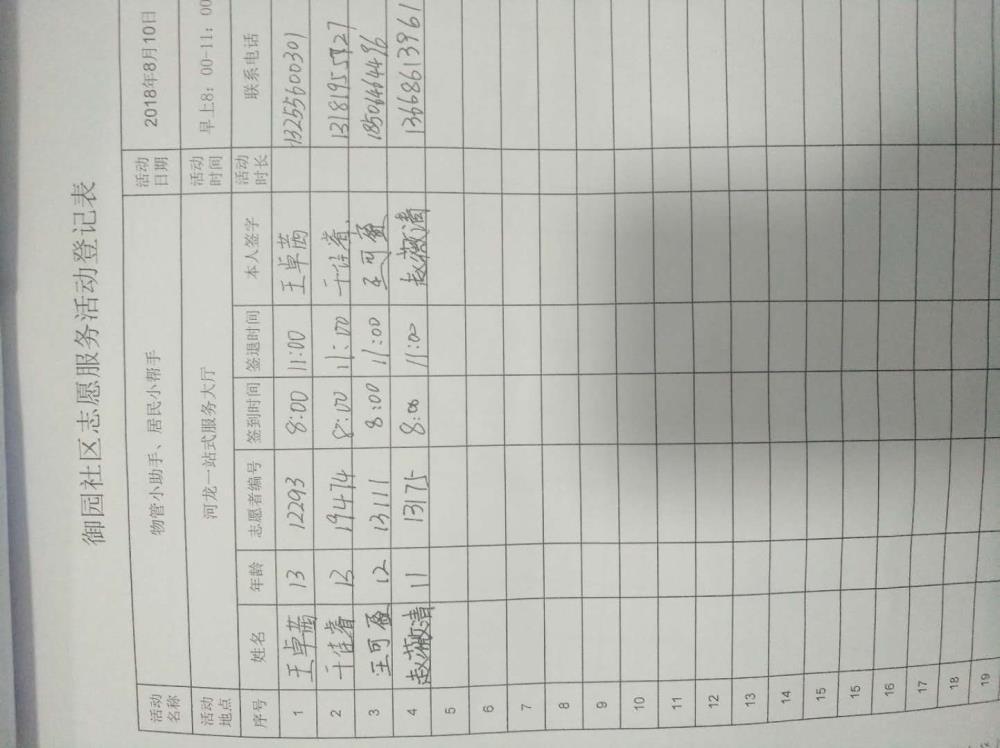 御园社区志愿服务活动登记表
活动名称 物管小助手、居民小帮手 活动日期 2018年8月10日
活动地点 河龙一站式服务大厅 活动时间 早上8：00-11：00
序号 姓名 年龄 志愿者编号 签到时间 签退时间 本人签字 活动时长 联系电话
1 王卓茜 13 12293 8:00 11:00 王卓茜 13255600301
2 于佳睿 13 19474 8:00 11:00 于佳睿 13181955727
3 王可盈 12 13111 8:00 11:00 王可盈 18506464496
4 赵薇清 11 13175 8:00 11:00 赵薇清 13668613961
5
6
7
8
9
10
11
12
13
14
15
15
16
17
18
19